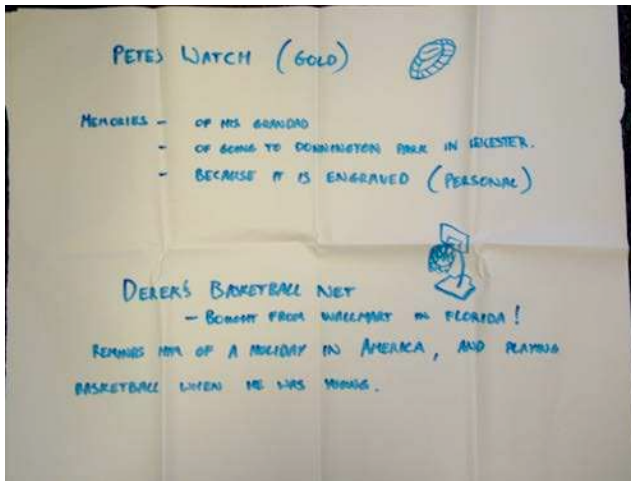 PETE'S WATCH (GOLD)
MEMORIES - OF HIS GRANDAD
- OF GOING TO DONNINGTON PARK IN LEICESTER.
- BECAUSE IT IS ENGRAVED (PERSONAL)
DEREK'S BASKETBALL NET
- BOUGHT FROM WALLMART IN FLORIDA!
REMINDS HIM OF A HOLIDAY IN AMERICA, AND PLAYING
BASKETBALL WHEN HE WAS YOUNG.